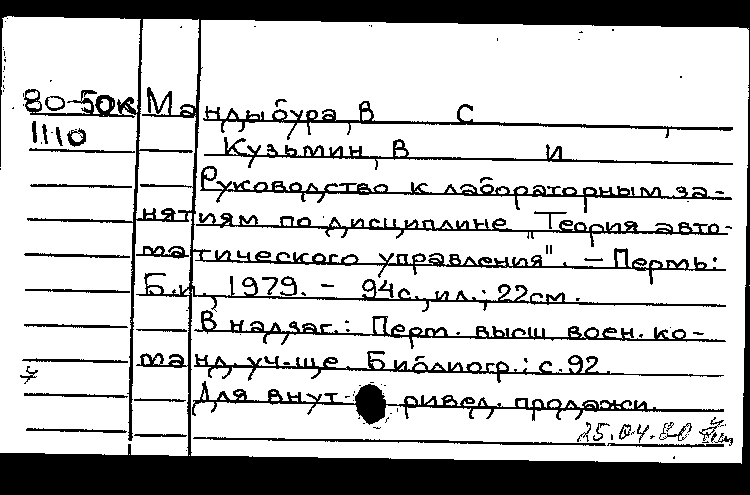 80-50к Мандыбура, В С ,
1110
Кузьмин, В И
Руководство к лабораторным за-
нятиям по дисциплине „Теория авто-
матического управления". – Пермь:
Б.и., 1979. – 94с., ил.; 22см.
В надзаг.: Перм. высш. воен. ко-
манд. уч-ще. Библиогр.: с.92.
Для внутривед. продажи.
25.04.80